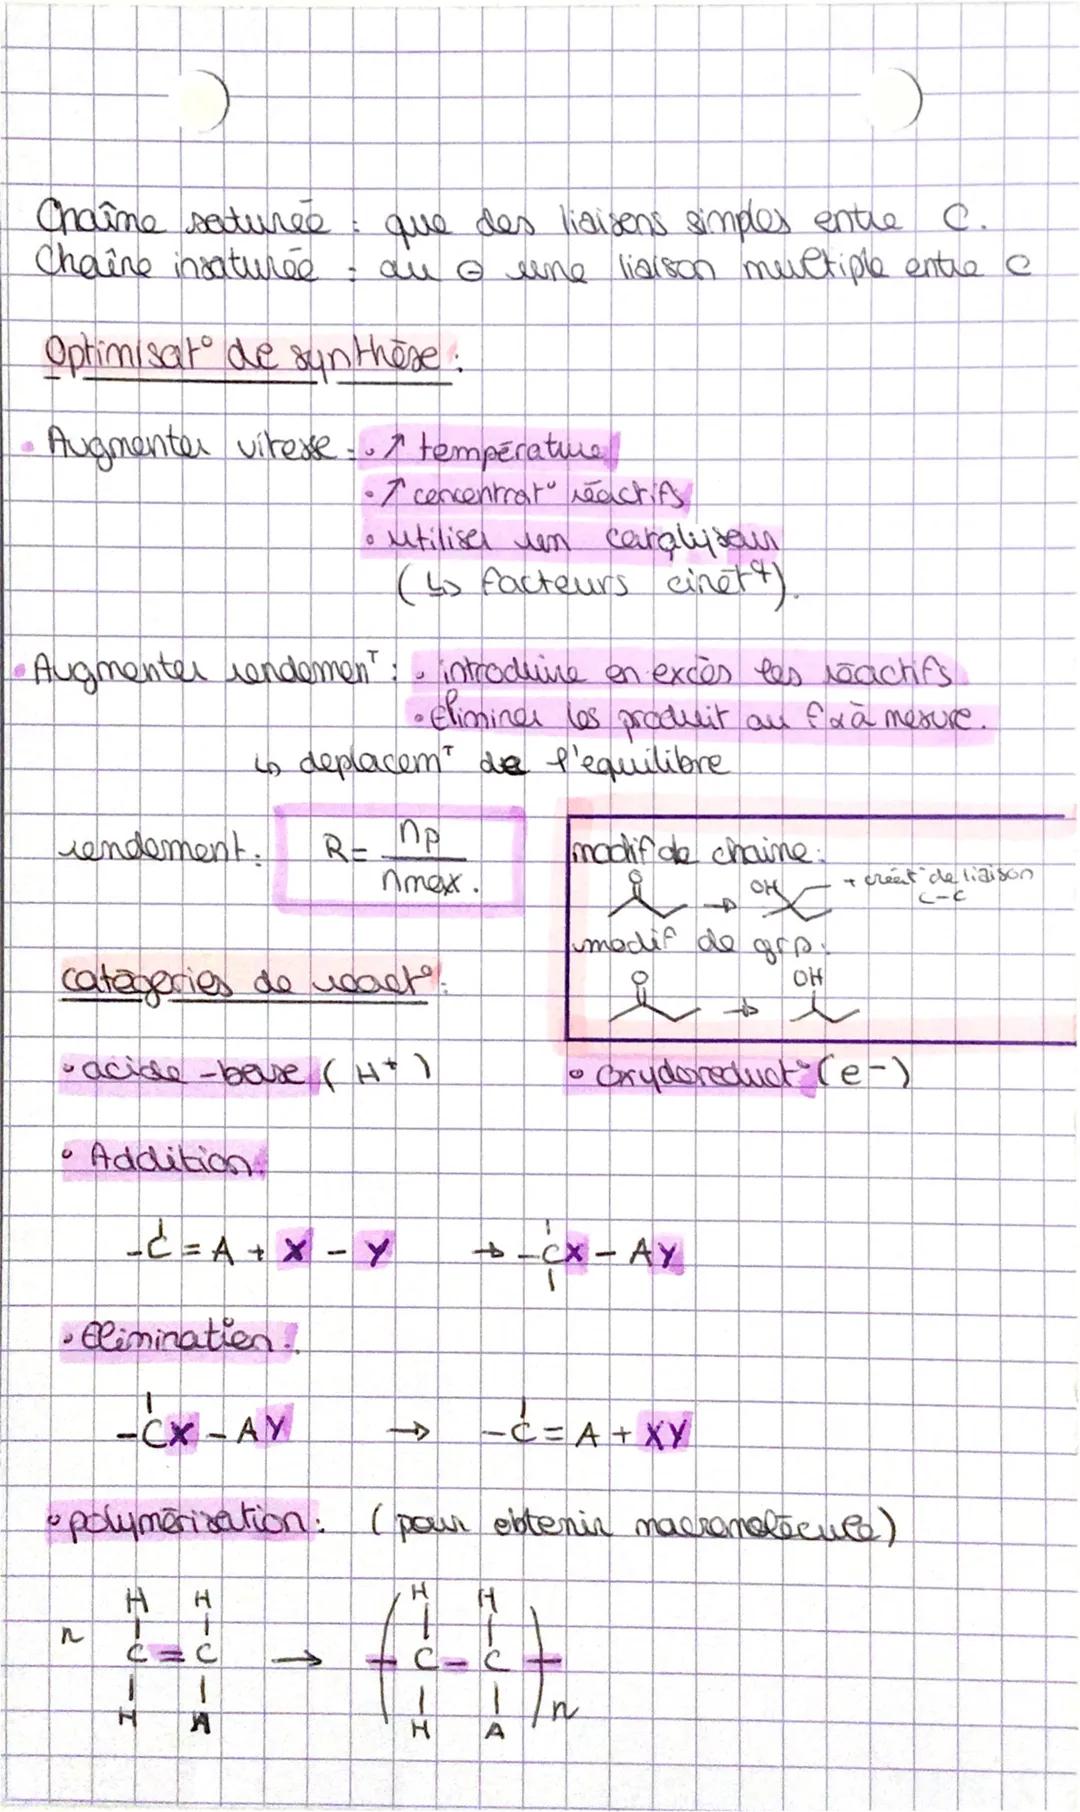 Chaîne saturée : que des liaisons simples entre C.
Chaîne insaturée : au ⊖ une liaison multiple entre C
Optimisat° de synthèse :
• Augmenter vitesse : • ↑ température
• ↑ concentrat° réactifs
• utiliser un catalyseur
(↳ facteurs cinétq).
• Augmenter rendemenT : • introduire en excès les réactifs
• éliminer les produit au f x à mesure.
↳ deplacemT de l'équilibre
rendement : R = np / nmax.
modif de chaine :
O → OH + créat° de liaison C-C
modif de grp :
O → OH
catégories de react° :
• acide-base (H+) • oxydoreduct° (e-)
• Addition :
-C = A + X - Y → -CX - AY
• Elimination :
-CX - AY → -C = A + XY
• polymérisation : (pour obtenir macromolécule)
H H H H
n C = C → ( C - C ) n
H A H A